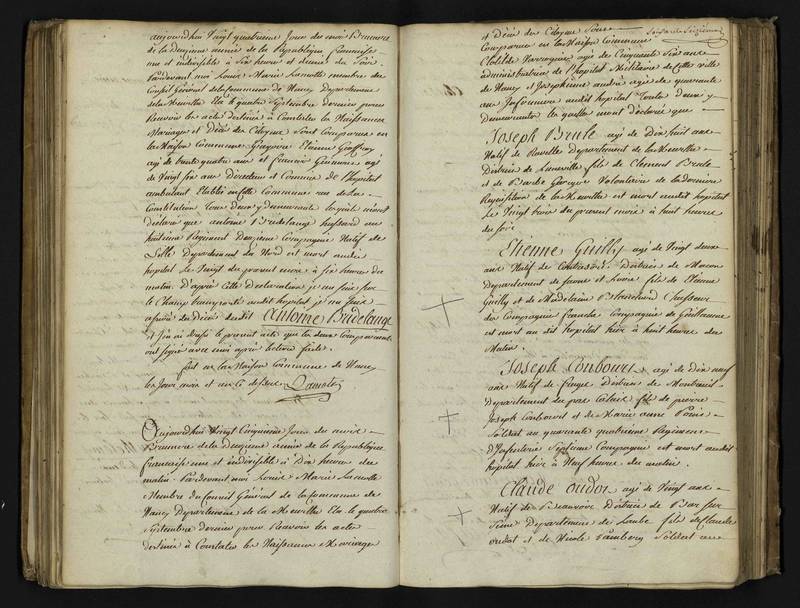 aujourdhui Vingt quatrieme Jour du mois Brumaire
de la deuxieme année de la Republique francaise
une et indivisible à Six heures et demie du Soir.
Pardevant moi Louis Marie Lamotte membre du
Conseil Général de la commune de Nancy Departement
de la Meurthe Elu le quatre Septembre dernier pour
Recevoir les actes destinés à Constater les Naissances
Mariages et Décès des Citoyens Sont Comparus en
la Maison Commune Etienne Geoffroy
agé de trente quatre ans et francois agé
de Vingt six ans Directeur et Commis de l'hopital
ambulant Etabli en cette Commune rue de la
Constitution tous deux y demeurants lesquels m'ont
déclaré que antoine Bridelange hussard au
huitieme Regiment Deuxieme Compagnie Natif de
Lille departement du Nord est mort audit
hopital le Vingt du present mois à six heures du
matin. d'après cette declaration je me suis sur
le Champ transporté audit hopital je me suis
assuré du Décès dudit Antoine Bridelange
et j'en ai dressé le present acte que les deux Comparants
ont signé avec moi après lecture faite.
fait en la Maison Commune de Nancy
les Jour, mois et an Ci dessus Lamotte
Aujourdhui Vingt Cinquieme Jour du mois
Brumaire de la Deuxieme année de la Republique
francaise une et indivisible à Dix heures du
matin. Pardevant moi Louis Marie Lamotte
Membre du Conseil Général de la Commune de
Nancy Departement de la Meurthe Elu le quatre
Septembre dernier pour Recevoir les actes
destinés à Constater les Naissances Mariages
et Décès des Citoyens Sont
Comparus en la Maison Commune
Clotilde agée de Cinquante Six ans
administratrice de l'hopital Militaire de cette ville
de Nancy et Josephine agée de quarante
ans Infirmiere audit hopital toutes deux y
Demeurantes lesquelles m'ont déclaré que
Joseph Brule agé de Dix huit ans
Natif de Departement de la Meurthe
District de Luneville fils de Clement Brule
et de Barbe Volontaire de la derniere
Requisition de la Meurthe est mort audit hopital
Le Vingt trois du present mois à huit heures
du soir
Etienne Guilly agé de Vingt deux
ans Natif de District de Macon
Departement de Saone et Loire fils de Etienne
Guilly et de Madelaine Blanchard Chasseur
de Compagnie franche Compagnie de Guillaume
est mort au dit hopital hier à huit heures du
Matin.
Joseph Coubourt agé de Dix neuf
ans Natif de District de Montreuil
Departement du pas Calais fils de pierre
Joseph Coubourt et de Marie anne
Soldat au quarante quatrieme Regiment
d'Infanterie Septieme Compagnie est mort audit
hopital hier à Neuf heures du matin.
Claude Oudot agé de Vingt ans
Natif de District de Bar sur
Seine Departement de Laube fils de Claude
oudot et de Nicole Soldat au